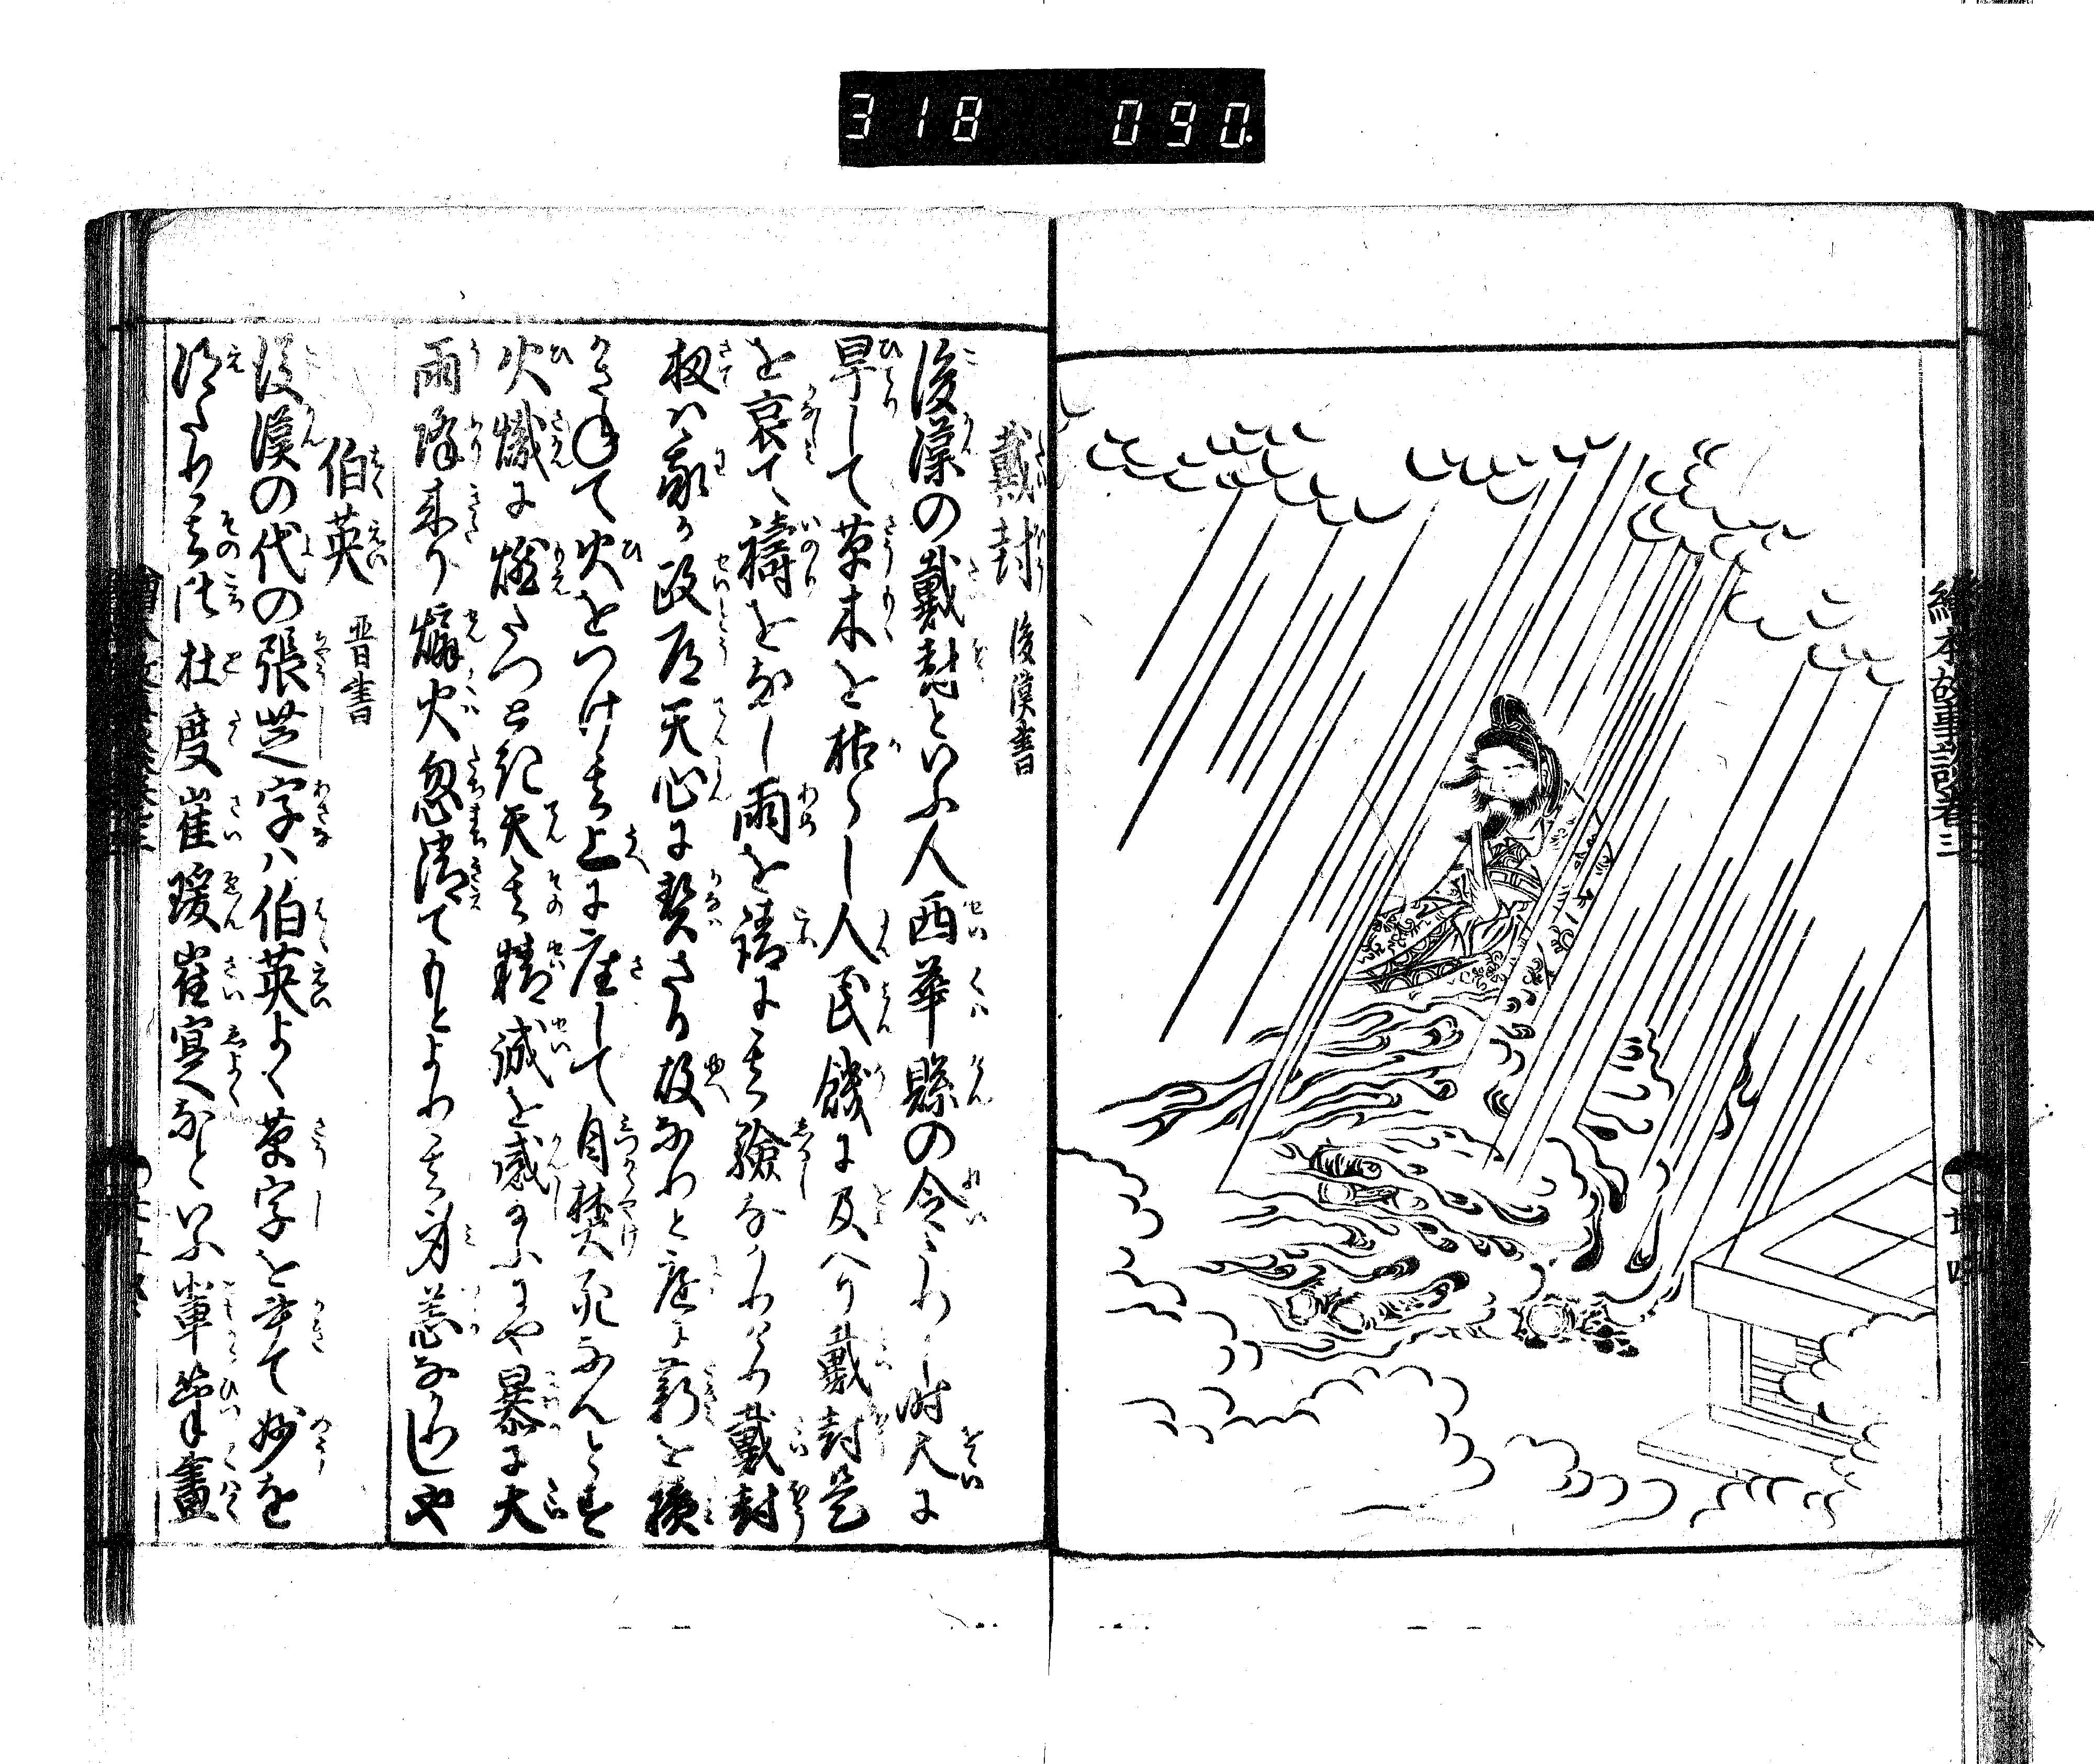 318 090
繪本故事談巻三
戴封 後漢書
後漢の戴封といふ人西華縣の令たりし時大に
旱して草木を枯らし人民餓に及へり戴封是
を哀て禱をなし雨を請に其驗なかりけり戴封
扨は我か政道天心に契さる故なりと庭に薪を積
かさねて火をつけ其上に座して自焚死なんとす
火熾に燃たつとき天其精誠を感し給ふにや暴に大
雨降来り㷔火忽消てもとより其身恙なかりしや
伯英 晋書
後漢の代の張芝字ハ伯英よく草字を書て妙を
得たり其比杜度崔瑗崔寔なといふ輩筆畫